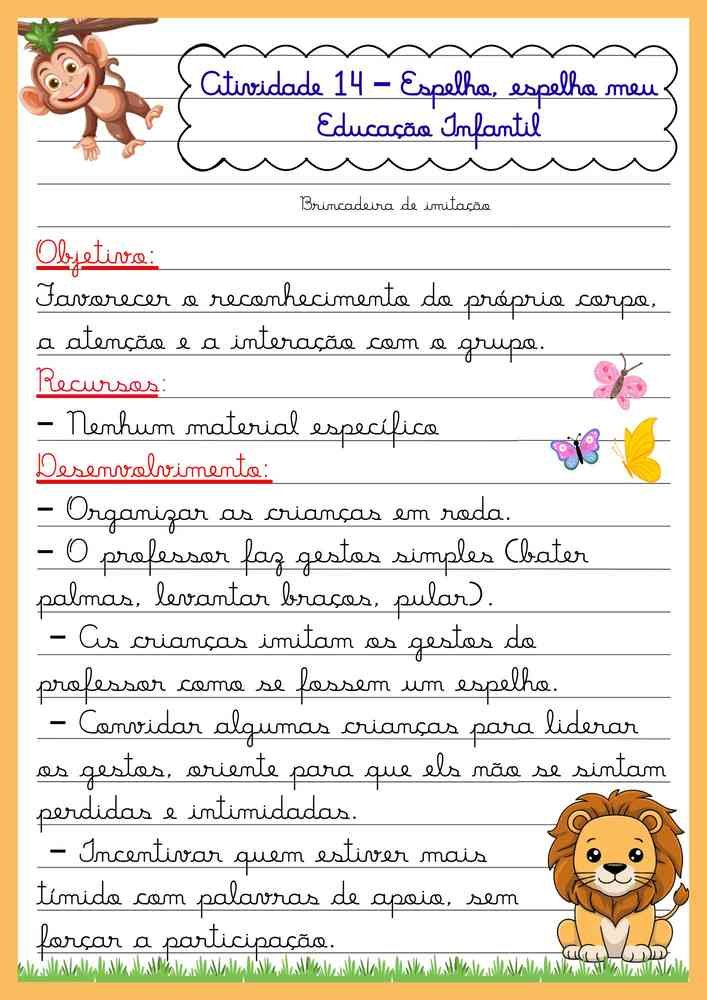 Atividade 14 – Espelho, espelho meu
Educação Infantil
Brincadeira de imitação
Objetivo:
Favorecer o reconhecimento do próprio corpo,
a atenção e a interação com o grupo.
Recursos:
– Nenhum material específico
Desenvolvimento:
– Organizar as crianças em roda.
– O professor faz gestos simples (bater
palmas, levantar braços, pular).
– As crianças imitam os gestos do
professor como se fossem um espelho.
– Convidar algumas crianças para liderar
os gestos, oriente para que els não se sintam
perdidas e intimidadas.
– Incentivar quem estiver mais
tímido com palavras de apoio, sem
forçar a participação.